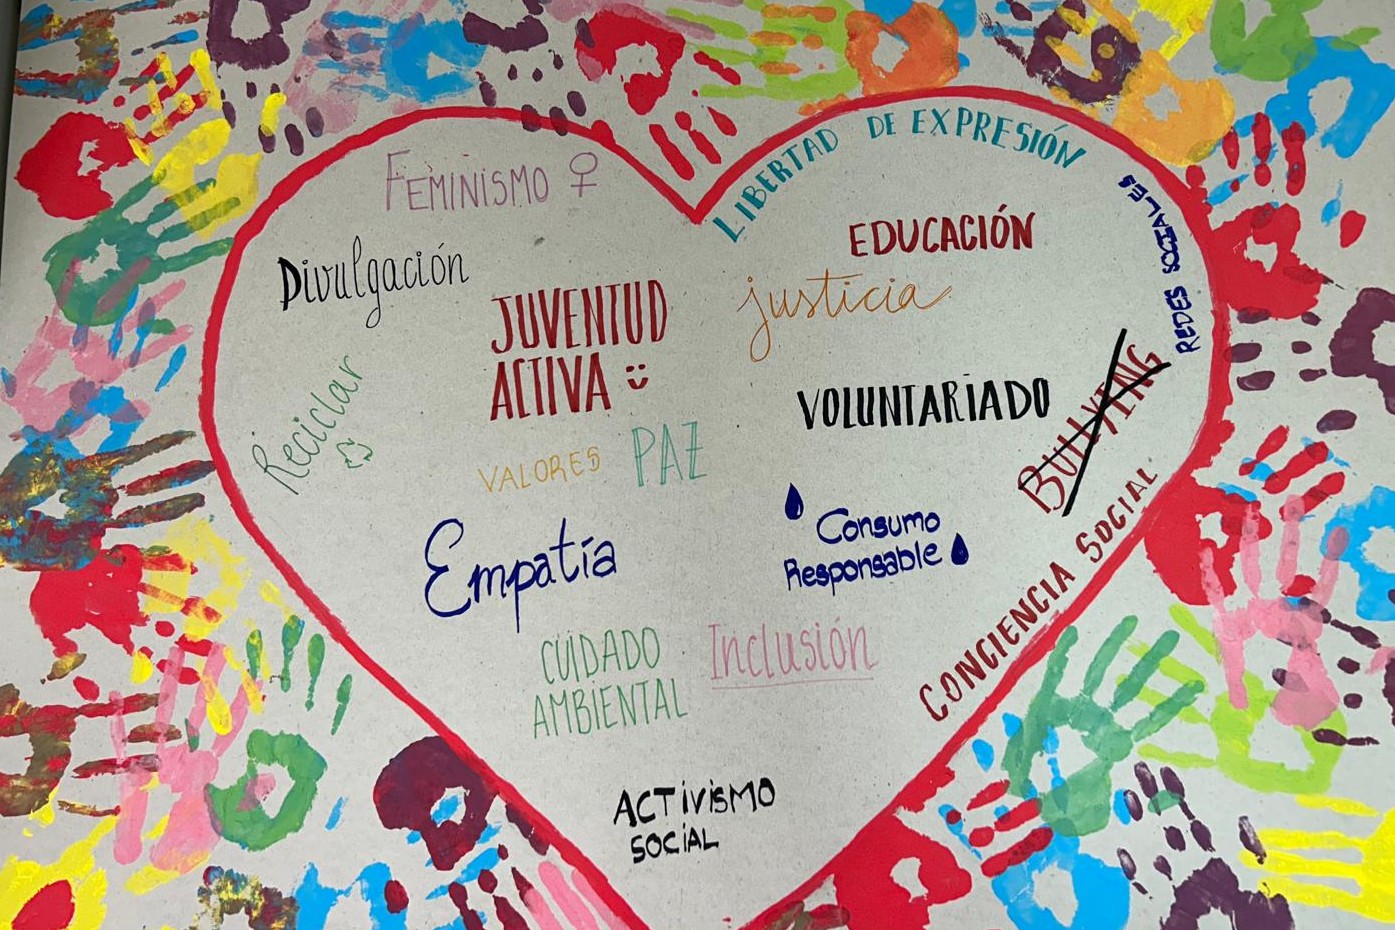 FEMINISMO ♀
LIBERTAD DE EXPRESIÓN
Divulgación
EDUCACIÓN
REDES SOCIALES
JUVENTUD
ACTIVA
justicia
Reciclar
VOLUNTARIADO
BULLYING
VALORES
PAZ
Empatía
Consumo
Responsable
CONCIENCIA SOCIAL
CUIDADO
AMBIENTAL
Inclusión
ACTIVISMO
SOCIAL